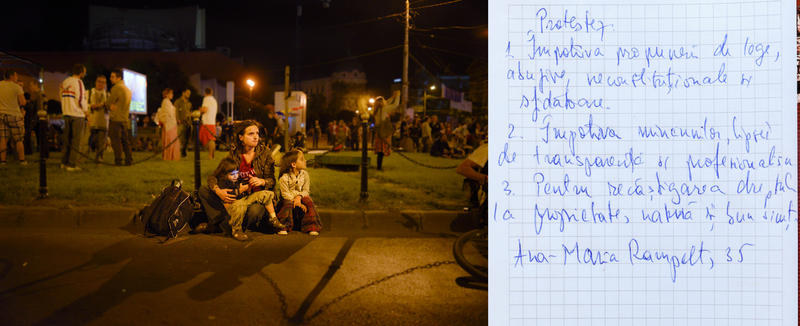 Protestez
1. Împotriva propunerii de lege,
abuzive, neconstituționale și
sfidătoare.
2. Împotriva minciunilor, lipsei
de transparență și profesionalism
3. Pentru recâștigarea dreptului
la proprietate, natură și bun simț.
Ana-Maria Rampelt, 35